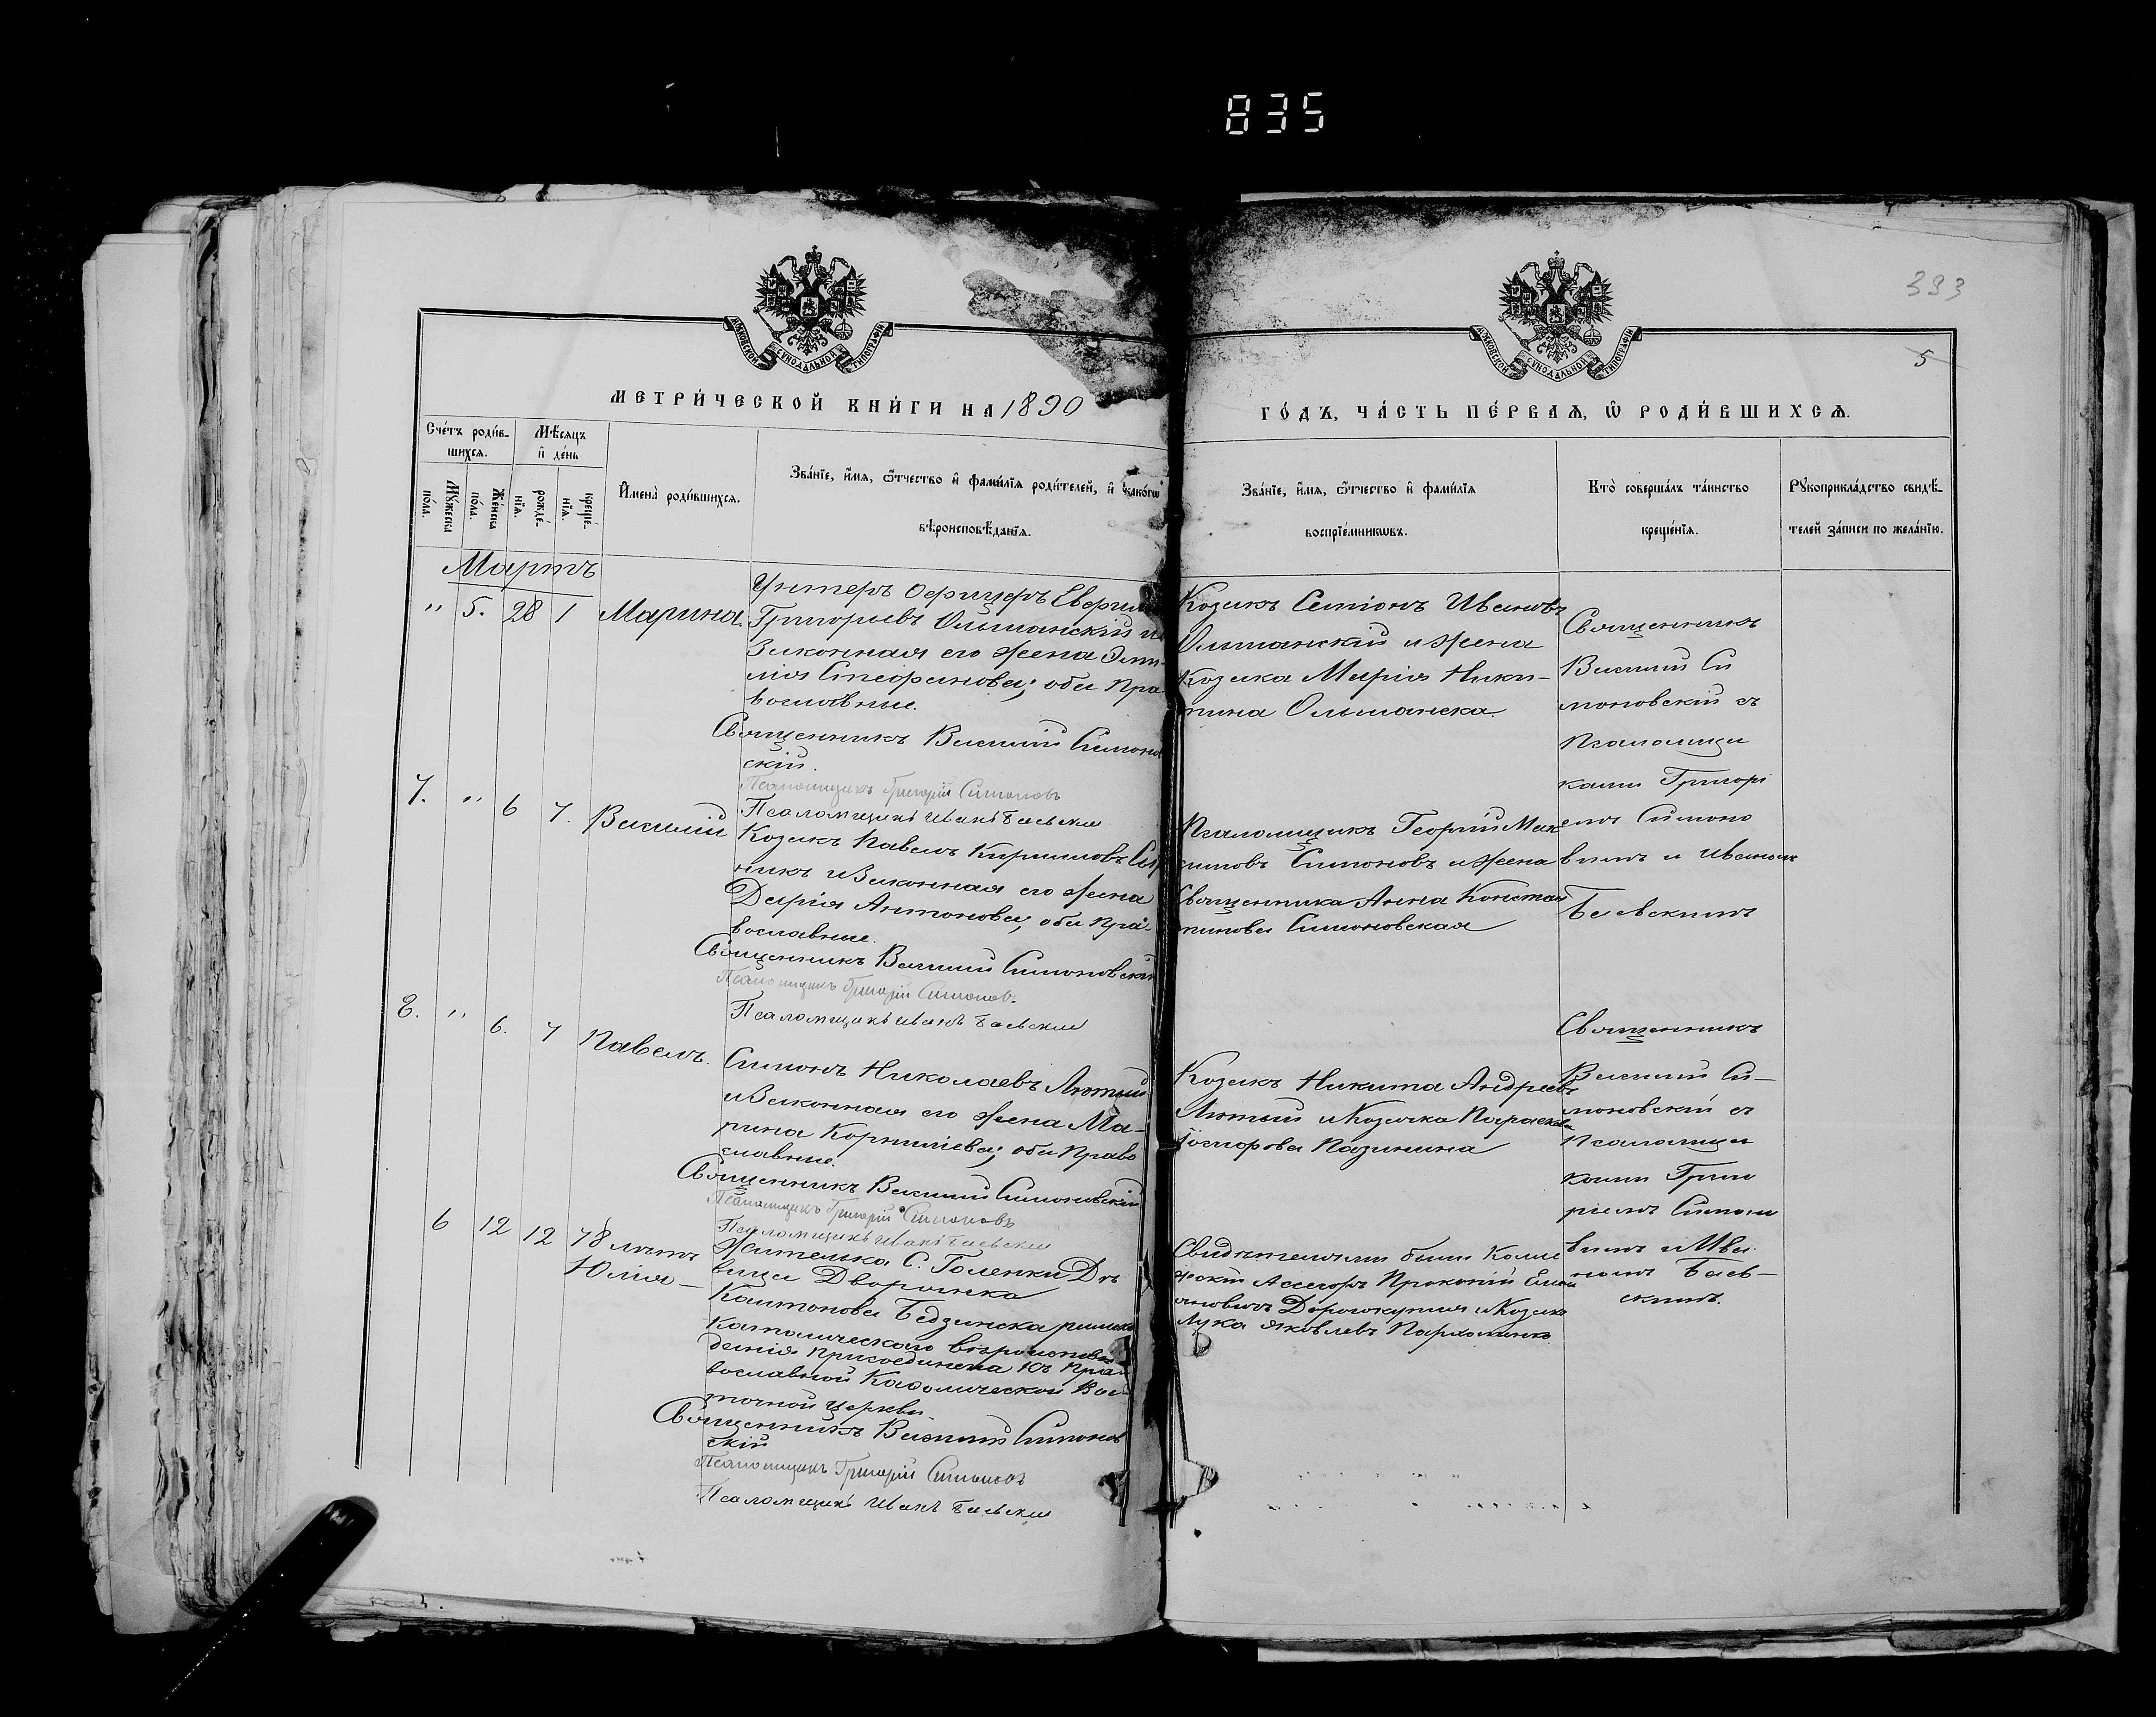 835
393
5
МОСКОВСКОЙ СѴНОДАЛЬНОЙ ТИПОГРАФІИ
МОСКОВСКОЙ СѴНОДАЛЬНОЙ ТИПОГРАФІИ
МЕТРИ́ЧЕСКОЙ КНИ́ГИ НА 1890
ГО́ДЪ, ЧА́СТЬ ПЕ́РВАѦ, Ѿ РОДИ́ВШИХСѦ.
Сче́тъ роди́в-
шихсѧ.
Мѣ́сѧцъ
и҆ де́нь
Мꙋ́жеска
по́ла.
Же́нска
по́ла.
рожде́-
нїѧ.
креще́-
нїѧ.
И҆мена̀ роди́вшихсѧ.
Зва́нїе, и҆́мѧ, ѻ҆́тчество и҆ фамѝлїѧ роди́телей, и҆ какѡ́гѡ
вѣроисповѣ́данїѧ.
Зва́нїе, и҆́мѧ, ѻ҆́тчество и҆ фамѝлїѧ
воспрїе́мникѡвъ.
Кто̀ соверша́лъ та́инство
креще́нїѧ.
Рꙋкоприкла́дство свидѣ́-
телей за́писи по жела́нїю.
Мартъ
" 5. 28 1 Марина.
Унтеръ Офицеръ
Григорьевъ Ольшанскій и
Законная его жена Эми-
лія Стефанова; оба Пра-
вославные.
Священникъ Василій Симонов
скій.
Псаломщикъ Григорій Симоновъ
Псаломщикъ Иванъ Баевскій
Козакъ Семіонъ Ивановъ
Ольшанскій и жена
Козака Марія Ники-
тина Ольшанска.
Священникъ
Василій Си
моновскій съ
псаломщи
ками Григорі
емъ Симоно
вимъ и Иваномъ
Баевскимъ
7. " 6 7. Василій
Козакъ Павелъ Кирилловъ
никъ и Законная его жена
Дарія Антонова; оба Пра-
вославные.
Священникъ Василій Симоновскій
Псаломщикъ Григорій Симоновъ
Псаломщикъ Иванъ Баевскій
Псаломщикъ Георгій Мак
симовъ Симоновъ и жена
Священника Анна Констан
тинова Симоновская
8. " 6. 7 Павелъ.
Симонъ Николаевъ Лютый
и Законная его жена Ма-
рина Корниліева; оба Право
славные.
Священникъ Василій Симоновскій
Псаломщикъ Григорій Симоновъ
Псаломщикъ Иванъ Баевскій
Козакъ Никита Андреевъ
Лютый и Козачка Параскева
Пазинина
Священникъ
Василій Си-
моновскій съ
псаломщи
ками Григо
ріемъ Симоно
вимъ и Ива
номъ Баев-
скимъ.
6 12 12 78 лѣтъ
Юлія
Жителька С. Голенки Дѣ
вица Дворянка
Каитонова Бедзинска римско
католическаго вѣроисповѣ
данія присоединена къ Пра
вославной Кафолической Вос
точной Церкви.
Священникъ Василій Симонов
скій
Псаломщикъ Григорій Симоновъ
Псаломщикъ Иванъ Баевскій
Свидѣтелями были Колле
жскій Асесоръ Прокопій
Дорошкупля и Козакъ
Лука Яковлевъ Пархоменко